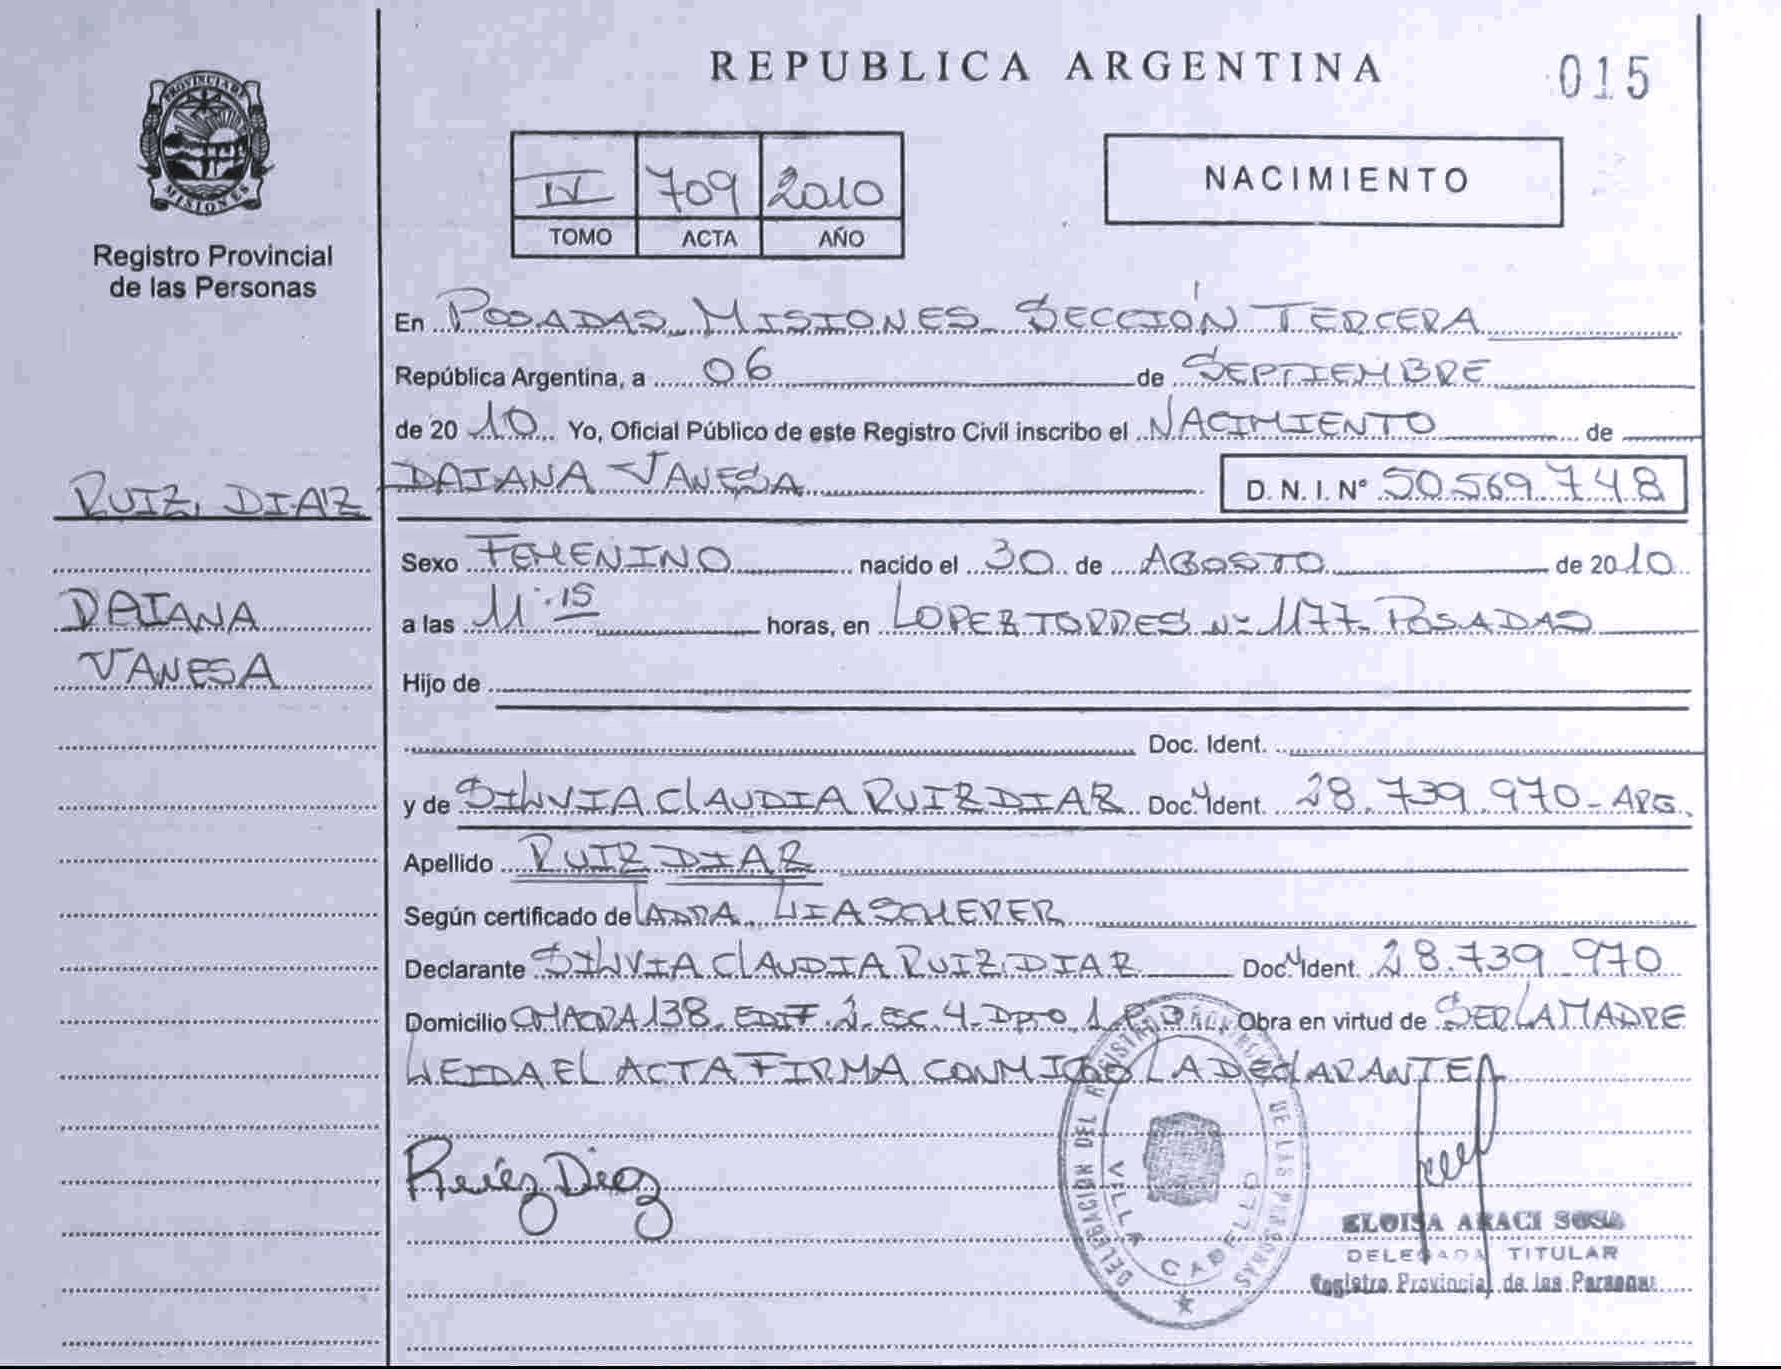 REPUBLICA ARGENTINA
015
PROVINCIA DE MISIONES
Registro Provincial
de las Personas
IV 709 2010
TOMO ACTA AÑO
NACIMIENTO
En POSADAS MISIONES SECCIÓN TERCERA
República Argentina, a 06 de SEPTIEMBRE
de 2010 Yo, Oficial Público de este Registro Civil inscribo el NACIMIENTO de
RUIZ, DIAZ
DAIANA VANESA D. N. I. N° 50.569.748
Sexo FEMENINO nacido el 30 de AGOSTO de 2010
DAIANA
a las 11:15 horas, en LOPEZ TORRES N° 1177 POSADAS
VANESA
Hijo de
Doc. Ident.
y de SILVIA CLAUDIA RUIZ DIAZ Doc. Ident. 28.739.970 - ARG.
Apellido RUIZ DIAZ
Según certificado de LA DRA. LIA SCHERER
Declarante SILVIA CLAUDIA RUIZ DIAZ Doc. Ident. 28.739.970
Domicilio CHACRA 138. EDIF. 2. ESC. 4. DPTO. 1 Obra en virtud de SER LA MADRE
LEIDA EL ACTA FIRMA CONMIGO LA DECLARANTE
Ruiz Diaz
DELEGACION DEL REGISTRO PROVINCIAL DE LAS PERSONAS
VILLA CABELLO
ELOISA ARACI SOSA
DELEGADA TITULAR
Registro Provincial de las Personas